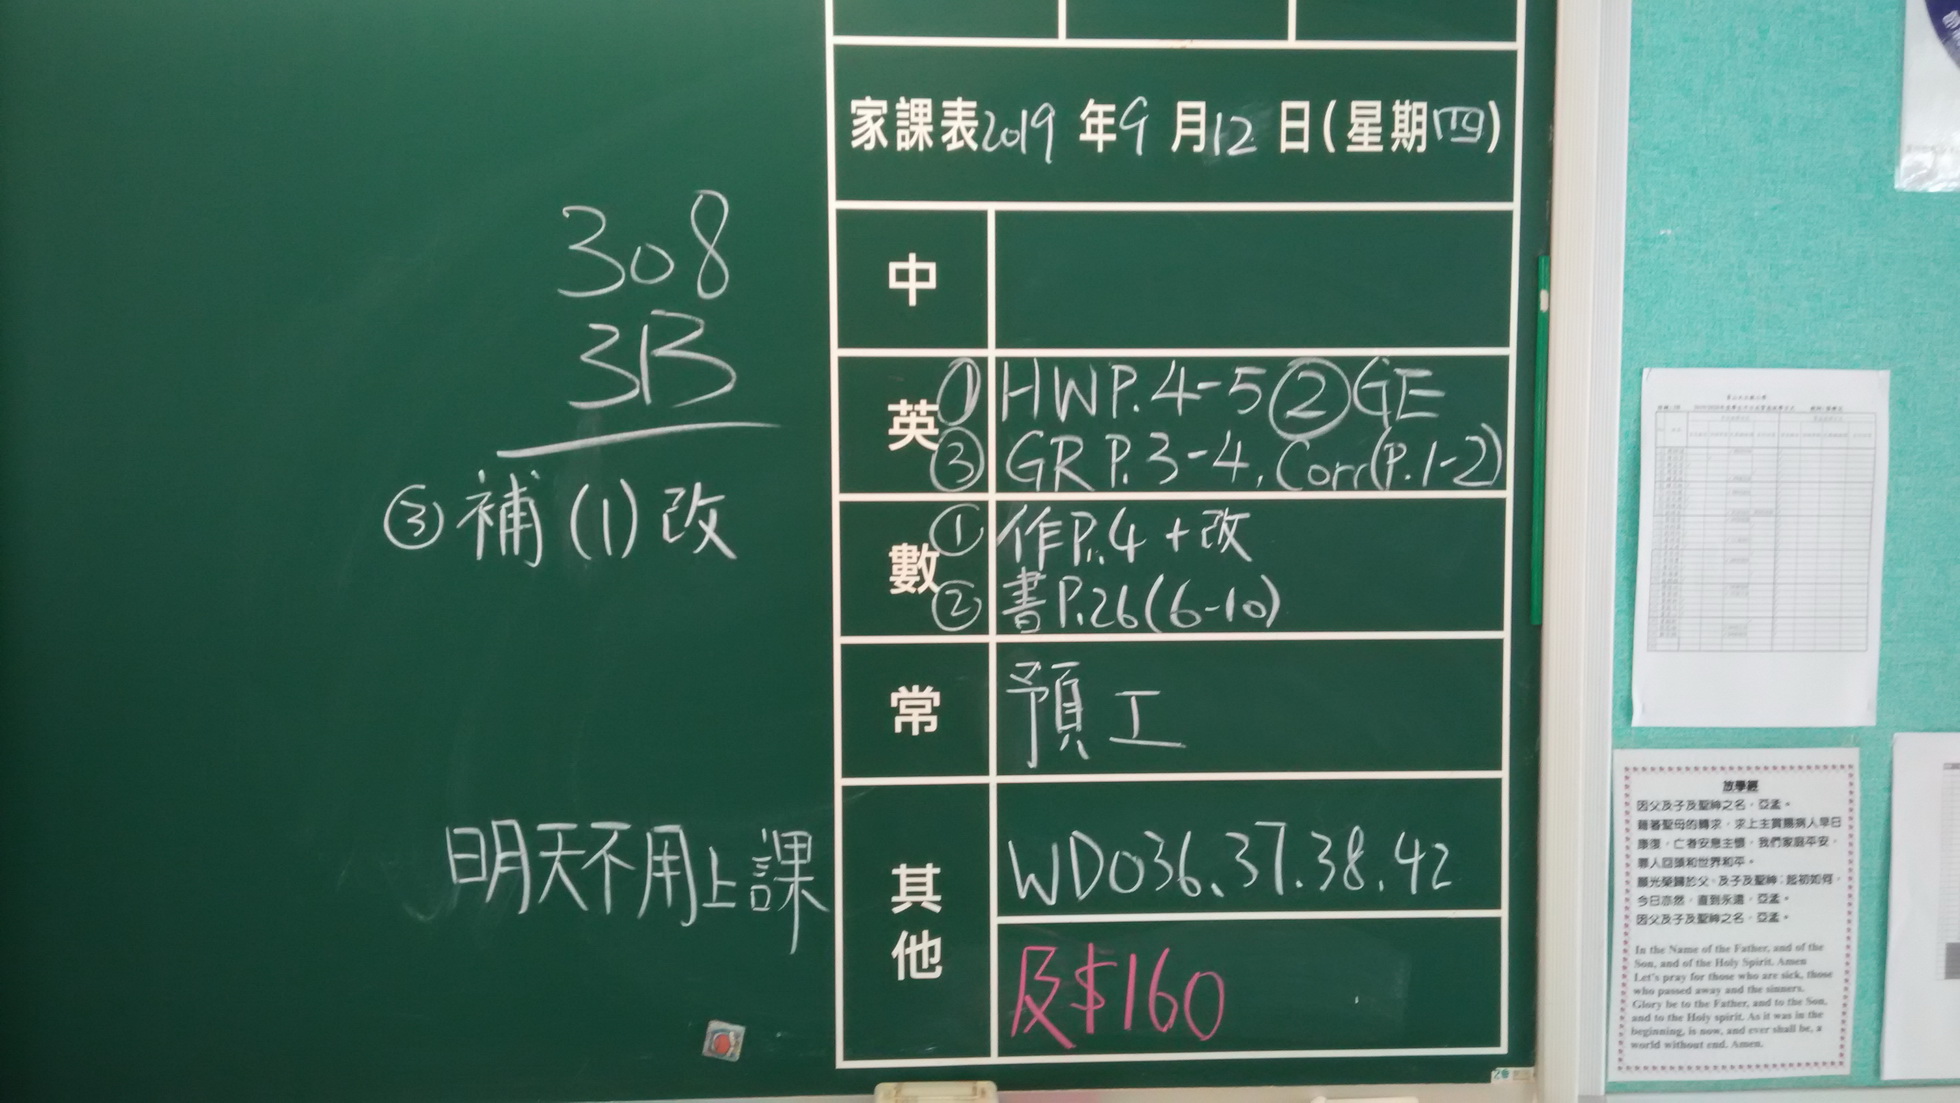 家課表2019年9月12日(星期四)
308
3B
③補(1)改
明天不用上課
中
英
①HWP.4-5②GE
③GRP.3-4, Corr(P.1-2)
數
①作P.4+改
②書P.26(6-10)
常
預工
其他
WD036.37.38.42
及$160
放學經
因父及子及聖神之名，亞孟。
藉著聖母的轉求，求上主賞賜病人早日
康復，亡者安息主懷，我們家庭平安，
罪人回頭和世界和平。
願光榮歸於父、及子及聖神；起初如何，
今日亦然，直到永遠，亞孟。
因父及子及聖神之名，亞孟。
In the Name of the Father, and of the
Son, and of the Holy Spirit. Amen
Let's pray for those who are sick, those
who passed away and the sinners.
Glory be to the Father, and to the Son,
and to the Holy spirit. As it was in the
beginning, is now, and ever shall be, a
world without end. Amen.